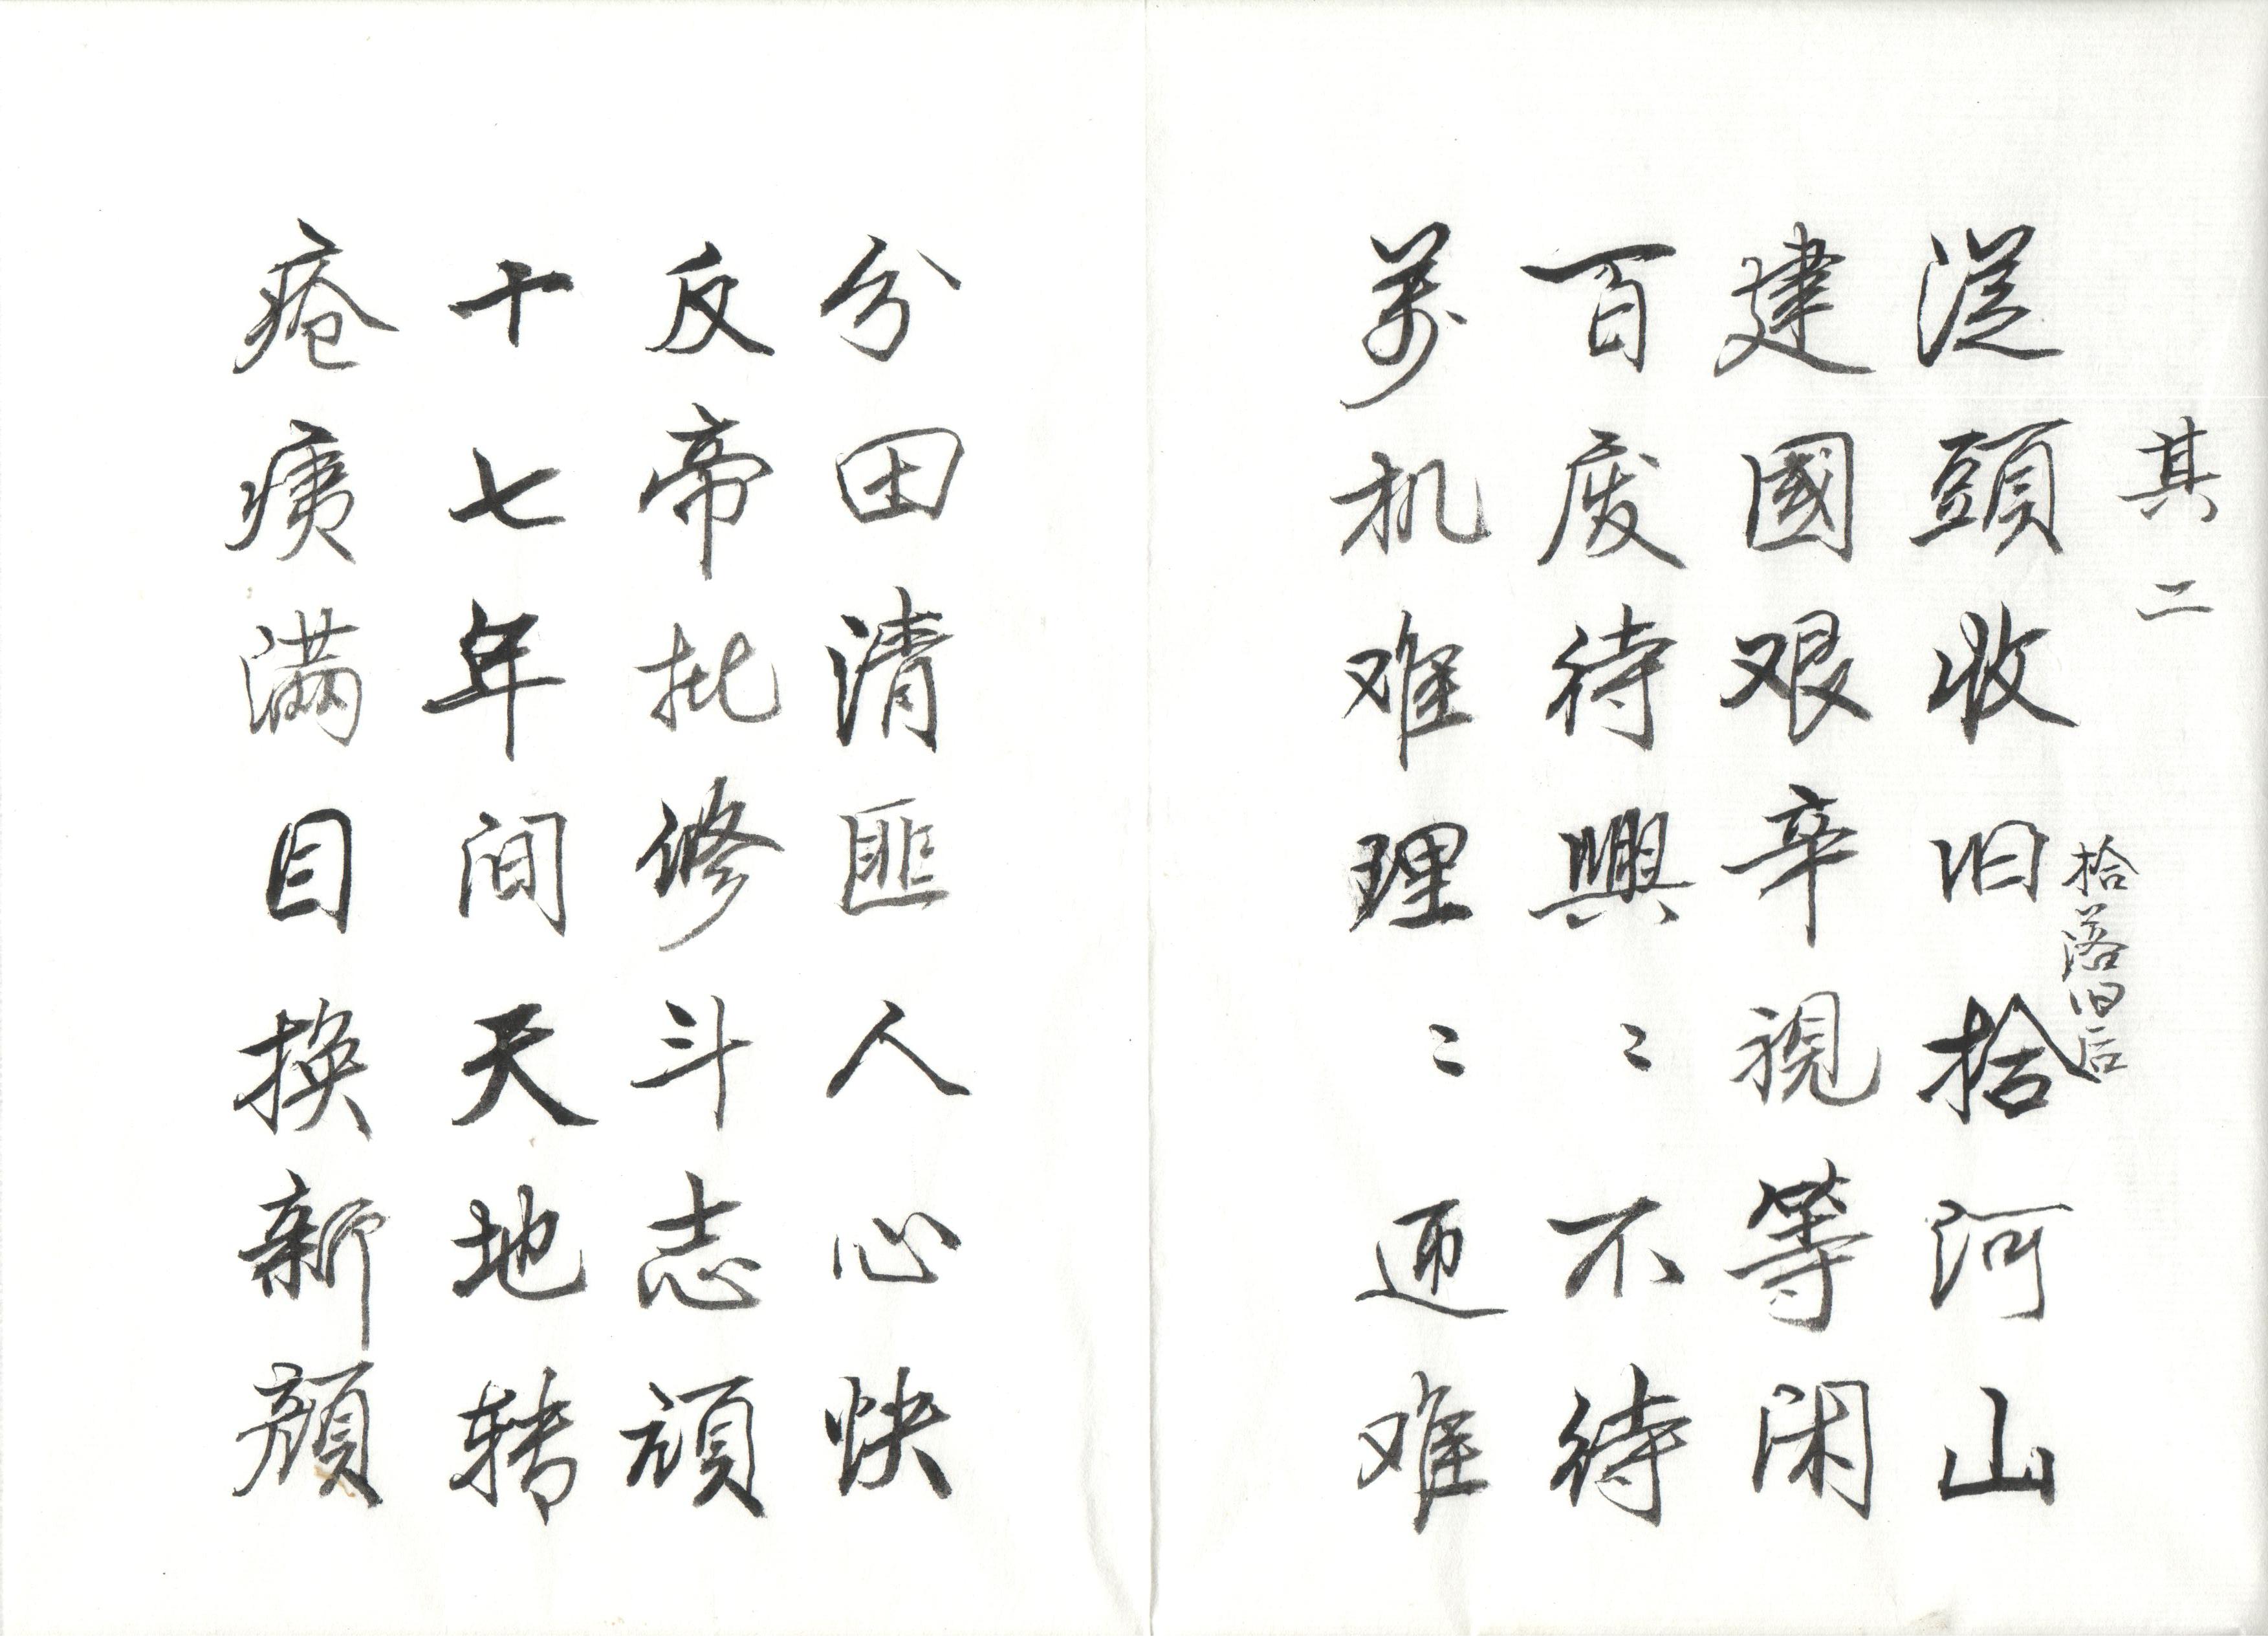 其二
從頭收旧拾河山
拾落旧后
建國艰辛視等闲
百废待興〻不待
萬机难理〻迎难
分田清匪人心快
反帝批修斗志頑
十七年间天地转
疮痍满目换新顔